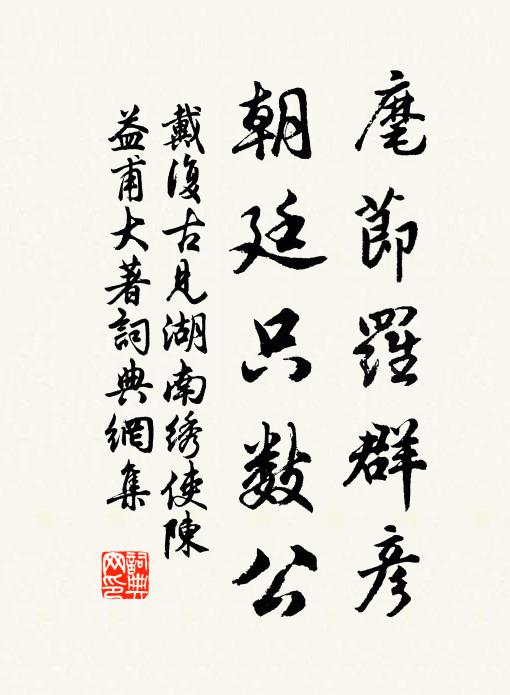 麾節羅群彥
朝廷只数公
戴復古見湖南绣使陳
益甫大著詞典網集
詞典網印